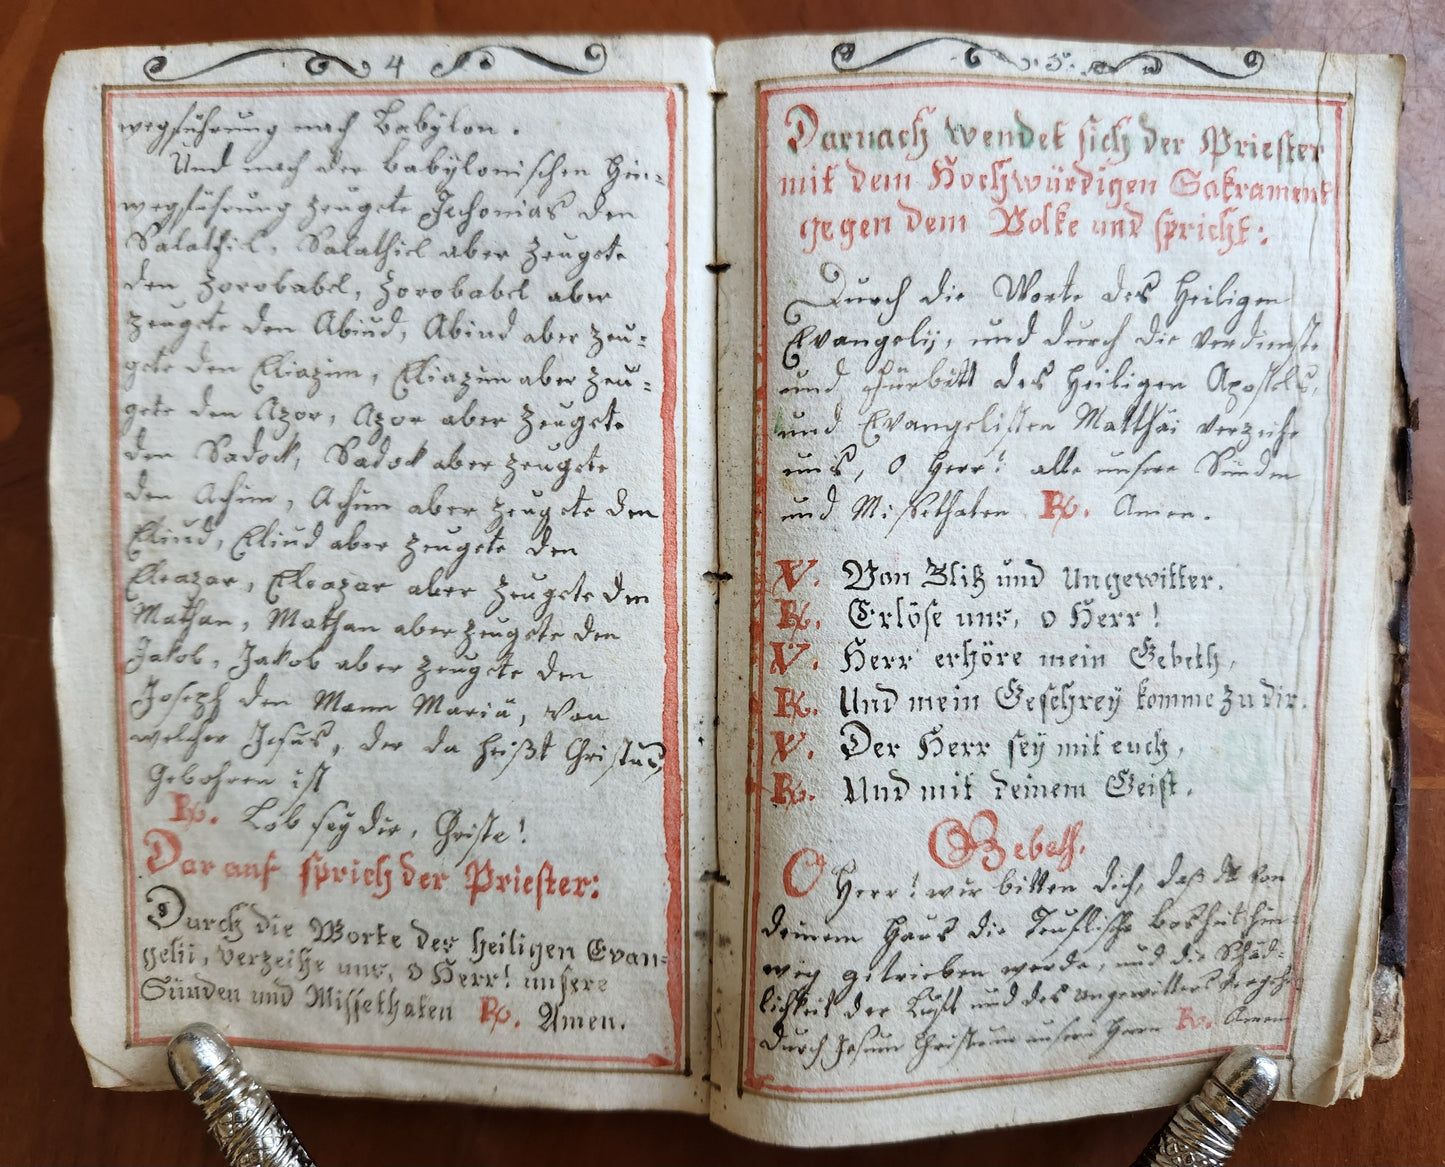 4
wegführung nach Babÿlon.
Und nach der babÿlonischen Hin=
wegführung zeugete Jechonias den
Salathiel, Salathiel aber zeugete
den Zorobabel, Zorobabel aber
zeugete den Abiud, Abiud aber zeu=
gete den Eliazim, Eliazim aber zeu=
gete den Azor, Azor aber zeugete
den Sadock, Sadock aber zeugete
den Achim, Achim aber zeugete den
Eliud, Eliud aber zeugete den
Eleazar, Eleazar aber zeugete den
Mathan, Mathan aber zeugete den
Jakob, Jakob aber zeugete den
Joseph den Mann Mariä, von
welcher Jesus, der da heißt Christus
Gebohren ist
R. Lob seÿ dir, Christe!
Darauf sprich der Priester:
Durch die Worte des heiligen Evan=
gelii, verzeihe uns, o Herr! unsere
Sünden und Missethaten R. Amen.
5.
Darnach wendet sich der Priester
mit dem Hochwürdigen Sakrament
gegen dem Volke und spricht:
Durch die Worte des heiligen
Evangelij, und durch die verdienste
und Fürbitt des heiligen Apostels,
und Evangelisten Matthäi verzeihe
uns, O Herr! alle unsere Sünden
und Missethaten R. Amen.
V. Von Blitz und Ungewitter.
R. Erlöse uns, o Herr!
V. Herr erhöre mein Gebeth,
R. Und mein Geschreÿ komme zu dir.
V. Der Herr seÿ mit euch,
R. Und mit deinem Geist.
Gebeth.
O Herr! wir bitten dich, daß von
deinem Haus die Teuflische bosheit hin=
weg getrieben werde, und die Schäd=
lichkeit der Luft und des ungewitters
durch Jesum Christum unsern Herrn R. Amen